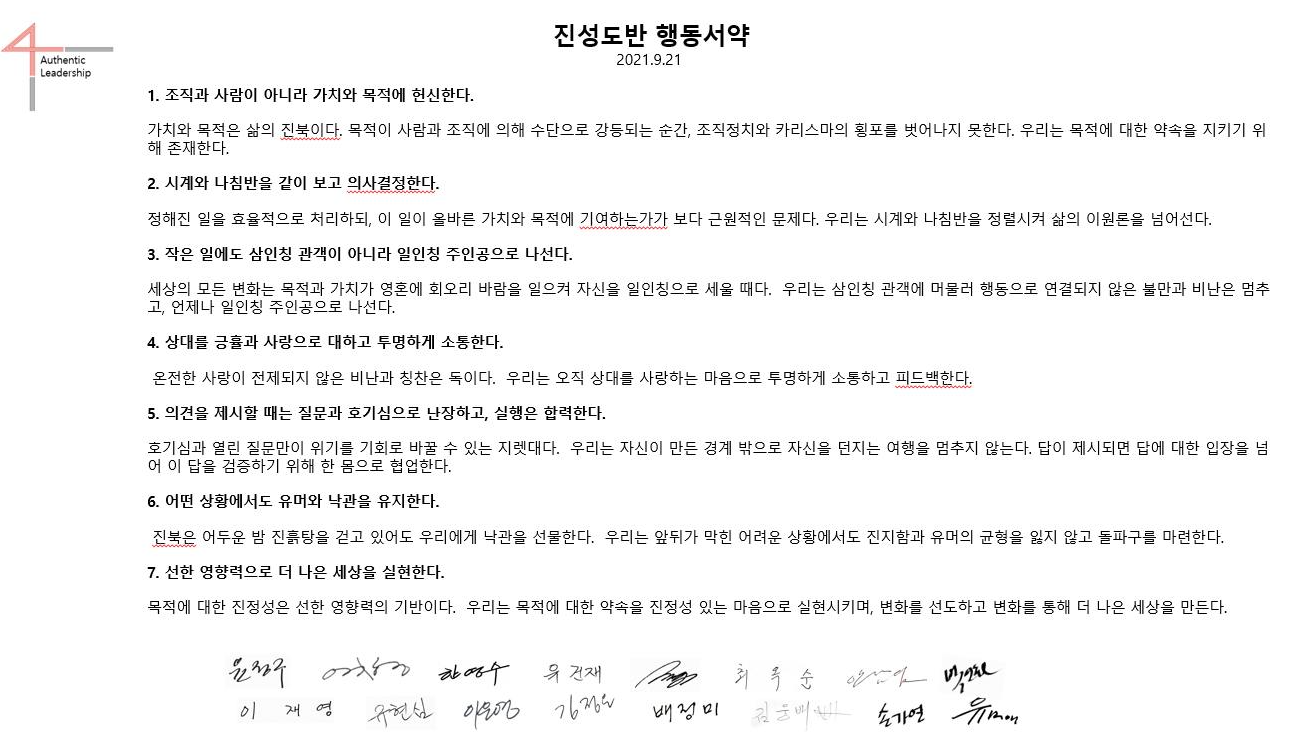 Authentic
Leadership
진성도반 행동서약
2021.9.21
1. 조직과 사람이 아니라 가치와 목적에 헌신한다.
가치와 목적은 삶의 진북이다. 목적이 사람과 조직에 의해 수단으로 강등되는 순간, 조직정치와 카리스마의 횡포를 벗어나지 못한다. 우리는 목적에 대한 약속을 지키기 위
해 존재한다.
2. 시계와 나침반을 같이 보고 의사결정한다.
정해진 일을 효율적으로 처리하되, 이 일이 올바른 가치와 목적에 기여하는가가 보다 근원적인 문제다. 우리는 시계와 나침반을 정렬시켜 삶의 이원론을 넘어선다.
3. 작은 일에도 삼인칭 관객이 아니라 일인칭 주인공으로 나선다.
세상의 모든 변화는 목적과 가치가 영혼에 회오리 바람을 일으켜 자신을 일인칭으로 세울 때다.  우리는 삼인칭 관객에 머물러 행동으로 연결되지 않은 불만과 비난은 멈추
고, 언제나 일인칭 주인공으로 나선다.
4. 상대를 긍휼과 사랑으로 대하고 투명하게 소통한다.
온전한 사랑이 전제되지 않은 비난과 칭찬은 독이다.  우리는 오직 상대를 사랑하는 마음으로 투명하게 소통하고 피드백한다.
5. 의견을 제시할 때는 질문과 호기심으로 난장하고, 실행은 합력한다.
호기심과 열린 질문만이 위기를 기회로 바꿀 수 있는 지렛대다.  우리는 자신이 만든 경계 밖으로 자신을 던지는 여행을 멈추지 않는다. 답이 제시되면 답에 대한 입장을 넘
어 이 답을 검증하기 위해 한 몸으로 협업한다.
6. 어떤 상황에서도 유머와 낙관을 유지한다.
진북은 어두운 밤 진흙탕을 걷고 있어도 우리에게 낙관을 선물한다.  우리는 앞뒤가 막힌 어려운 상황에서도 진지함과 유머의 균형을 잃지 않고 돌파구를 마련한다.
7. 선한 영향력으로 더 나은 세상을 실현한다.
목적에 대한 진정성은 선한 영향력의 기반이다.  우리는 목적에 대한 약속을 진정성 있는 마음으로 실현시키며, 변화를 선도하고 변화를 통해 더 나은 세상을 만든다.
윤정주 한영수 유건재
이재영 배정미 손가연